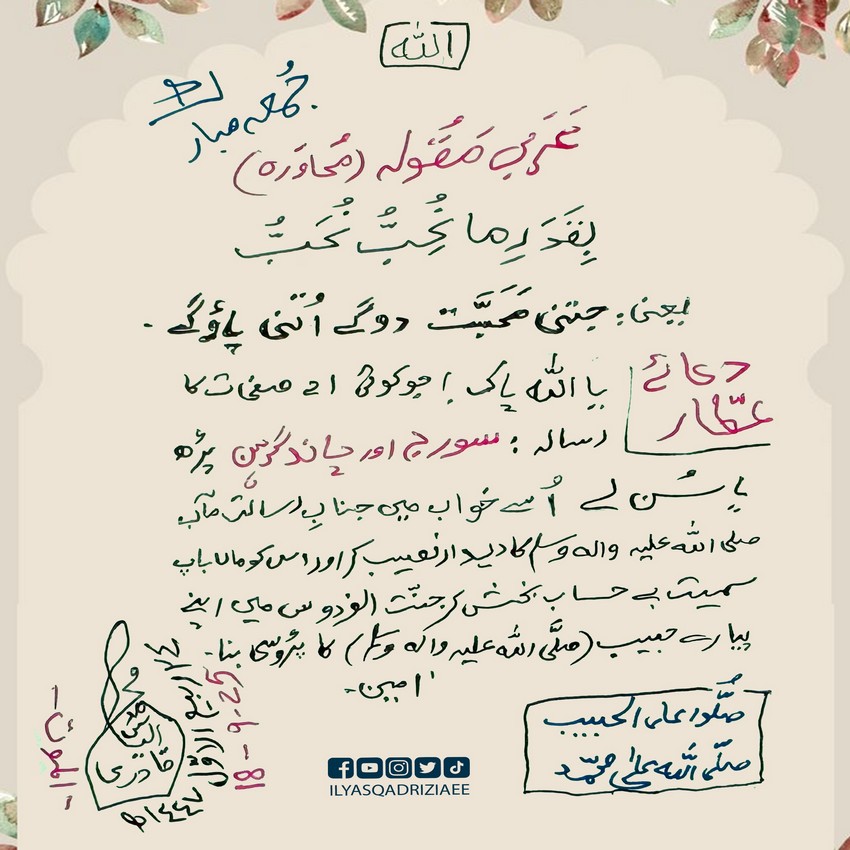 الله
جُمعہ مبارک
عَرَبی مَقُولہ (مُحاوَرہ)
بِقَدَرِ ما نُحِبُّ نُحَبُّ
یعنی: جتنی مَحَبَّت دوگے اُتنی پاؤگے۔
دعائے
عطّار
یا اللہ پاک! جو کوئی 21 صفحات کا
رسالہ: سورج اور چاند گرہن پڑھ
یا سُن لے اُسے خواب میں جنابِ رسالت مآب
صلی اللہ علیہ والہ وسلم کا دیدار نصیب کر اور اس کو ماں باپ
سمیت بے حساب بخش کر جنّت الفردوس میں اپنے
پیارے حبیب (صلَّی اللہ علیہ واٰلہ وسلم) کا پڑوسی بنا۔
اٰمین۔
صَلُّوا عَلَی الحبیب
صلَّی اللہ علیٰ محمّد
محمد الیاس قادری
۲۴ ربیع الاوّل ۱۴۴۷ھ
18-9-25
الموت
ILYASQADRIZIAEE